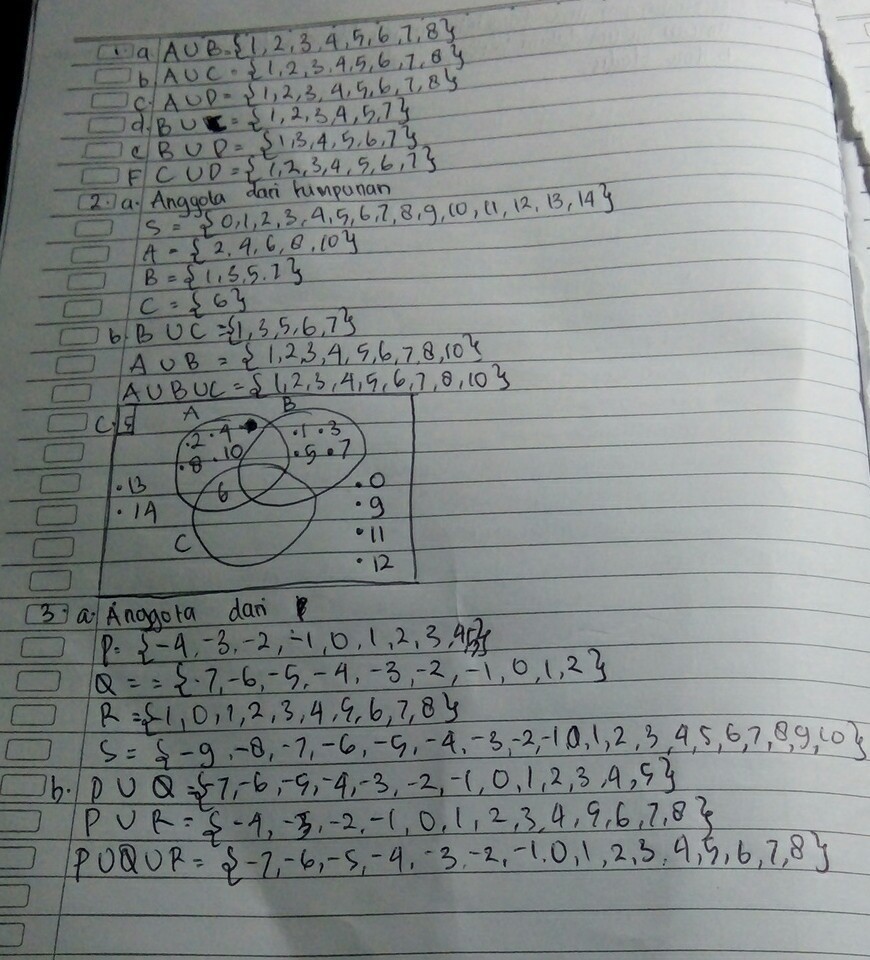 1. a A∪B={1,2,3,4,5,6,7,8}
b A∪C = {1,2,3,4,5,6,7,8}
c. A∪D = {1,2,3,4,5,6,7,8}
d. B∪C = {1,2,3,4,5,7}
e B∪D = {1,3,4,5,6,7}
F C∪D = {1,2,3,4,5,6,7}
2. a. Anggota dari humpunan
S = {0,1,2,3,4,5,6,7,8,9,10,11,12,13,14}
A = {2,4,6,8,10}
B = {1,3,5.7}
C = {6}
b. B∪C ={1,3,5,6,7}
A∪B = {1,2,3,4,5,6,7,8,10}
A∪B∪C = {1,2,3,4,5,6,7,8,10}
A B
C. S
.2 .4 .1 .3
.8 .10 .5 .7
.13 6 .0
.14 .9
C .11
.12
3. a. Anggota dari
P = {-4,-3,-2,-1,0,1,2,3,4,5}
Q = = {-7,-6,-5,-4,-3,-2,-1,0,1,2}
R = {1,0,1,2,3,4,5,6,7,8}
S = {-9,-8,-7,-6,-5,-4,-3,-2,-1 0,1,2,3,4,5,6,7,8,9,10}
b. P∪Q = {-7,-6,-5,-4,-3,-2,-1,0,1,2,3,4,5}
P∪R = {-4,-3,-2,-1,0,1,2,3,4,5,6,7,8}
P∪Q∪R = {-7,-6,-5,-4,-3,-2,-1.0,1,2,3,4,5,6,7,8}